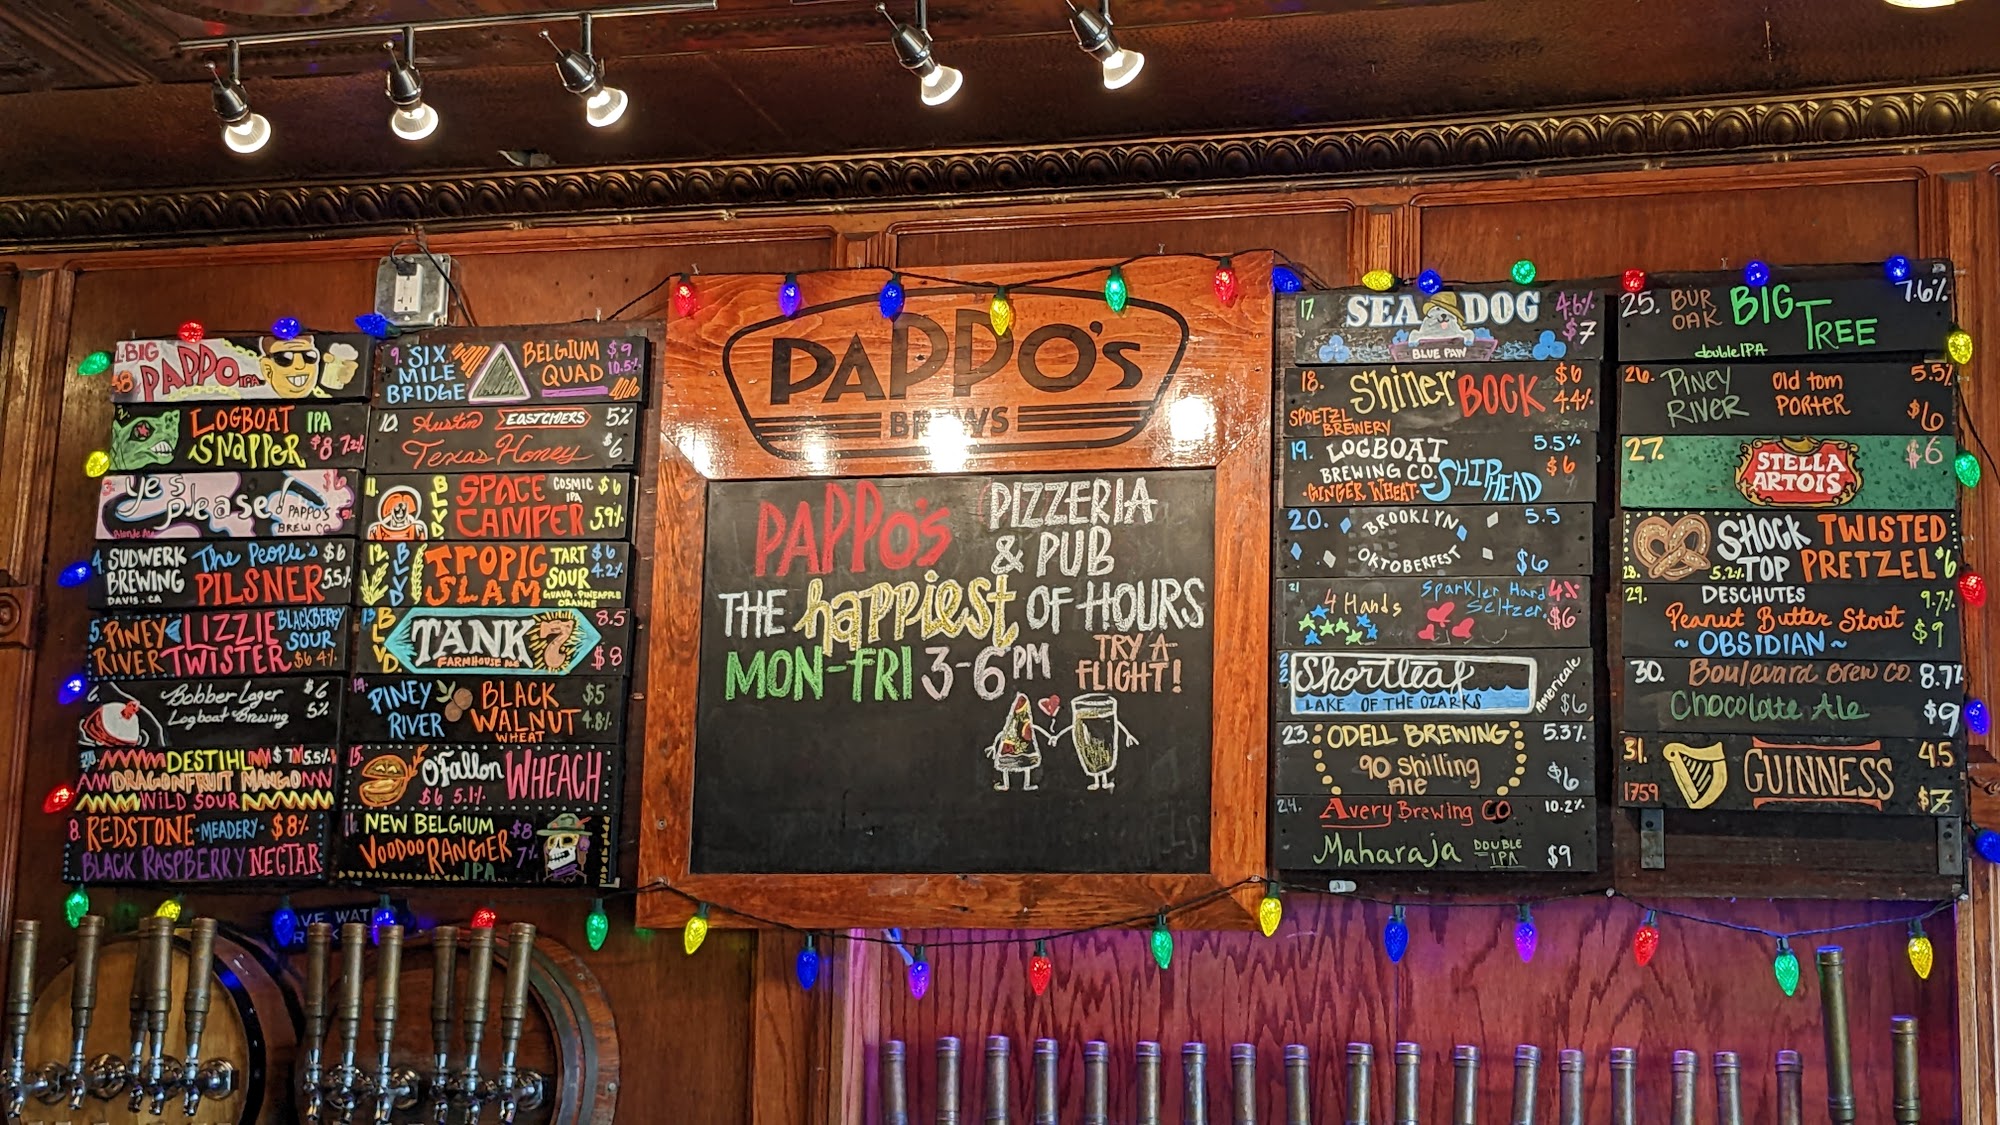 1. BIG
PAPPO IPA
$8
2. LOGBOAT IPA
SNAPPER $8 7.2%
3. yes $6
please PAPPO'S
BREW CO
Blonde Ale
4. SUDWERK The People's $6
BREWING PILSNER 5.5%
DAVIS, CA
5. PINEY LIZZIE BLACKBERRY
SOUR
RIVER TWISTER $6 4%
6. Bobber Lager $6
Logboat Brewing 5%
DESTIHL $7 5.5%
DRAGONFRUIT MANGO
WILD SOUR
8. REDSTONE MEADERY $8 8%
BLACK RASPBERRY NECTAR
9. SIX BELGIUM $9
MILE QUAD 10.5%
BRIDGE
10. Austin EASTCIDERS 5%
Texas Honey $6
11. BLVD SPACE COSMIC $6
IPA
CAMPER 5.9%
12. BLVD TROPIC TART $6
SLAM SOUR 4.2%
GUAVA-PINEAPPLE
ORANGE
13. BLVD. TANK 7 8.5
FARMHOUSE ALE $8
14. PINEY BLACK $5
RIVER WALNUT 4.8%
WHEAT
15. O'Fallon WHEACH
$6 5.1%
16. NEW BELGIUM $8
VOODOO RANGER 7%
IPA
PAPPO'S
BREWS
PAPPO'S PIZZERIA
& PUB
THE happiest OF HOURS
MON-FRI 3-6PM TRY A
FLIGHT!
17. SEA DOG 4.6%
$7
BLUE PAW
18. Shiner BOCK $6
4.4%
SPOETZL
BREWERY
19. LOGBOAT 5.5%
BREWING CO. SHIPHEAD $6
·GINGER WHEAT·
20. BROOKLYN 5.5
OKTOBERFEST $6
21 4 Hands Sparkler Hard 4%
Seltzer $6
22 Shortleaf Americale
LAKE OF THE OZARKS $6
23. ODELL BREWING 5.3%
90 Shilling $6
Ale
24. Avery Brewing CO. 10.2%
Maharaja DOUBLE
IPA $9
25. BUR BIG TREE 7.6%
OAK
double IPA
26. PINEY Old Tom 5.5%
RIVER PORTER $6
27. STELLA $6
ARTOIS
28. SHOCK TWISTED
TOP PRETZEL $6
5.2%
29. DESCHUTES 9.7%
Peanut Butter Stout $9
~ OBSIDIAN ~
30. Boulevard Brew Co. 8.7%
Chocolate Ale $9
31. GUINNESS 4.5
1759 $7